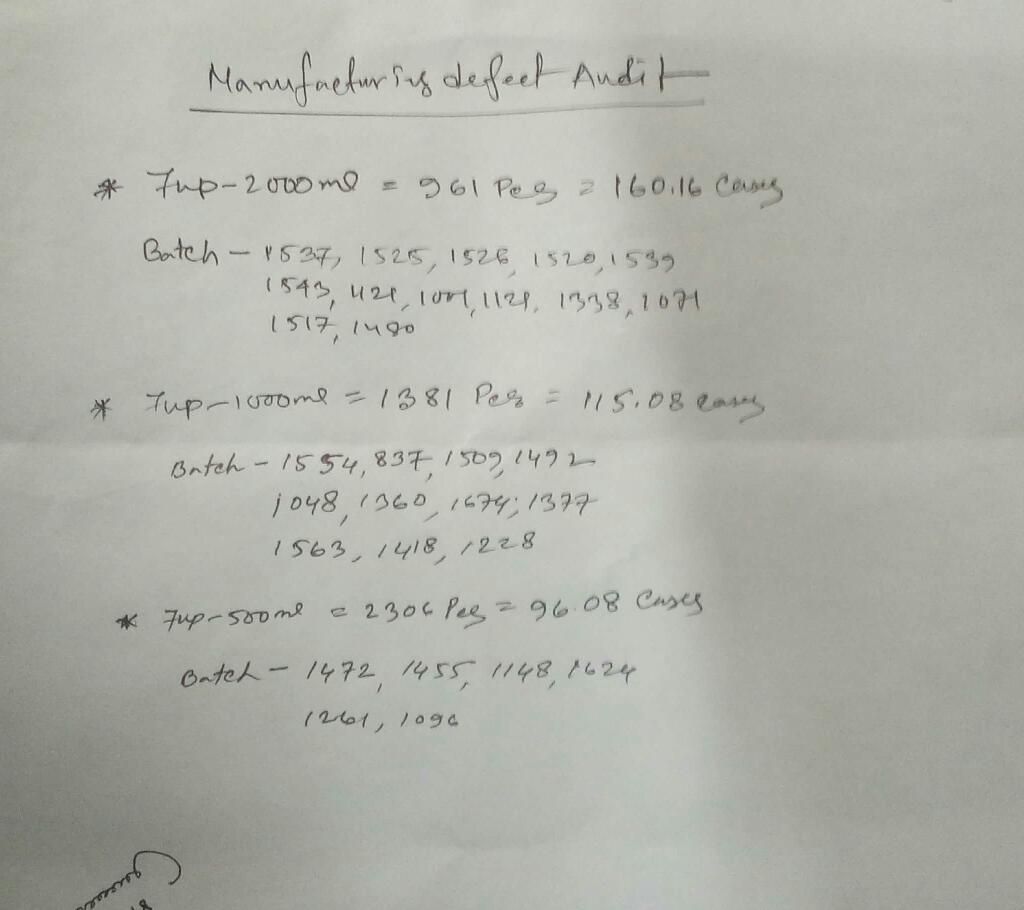 Manufacturing defect Audit
* 7up-2000ml = 961 Pcs = 160.16 Cases
Batch - 1537, 1525, 1526, 1520, 1539
1543, 1001, 1338, 1071
1517, 1480
* 7up-1000ml = 1381 Pcs = 115.08 cases
Batch - 1554, 837, 1509, 1492
1048, 1360, 1674, 1377
1563, 1418, 1228
* 7up-500ml = 2306 Pcs = 96.08 Cases
Batch - 1472, 1455, 1148, 1624
1261, 1096